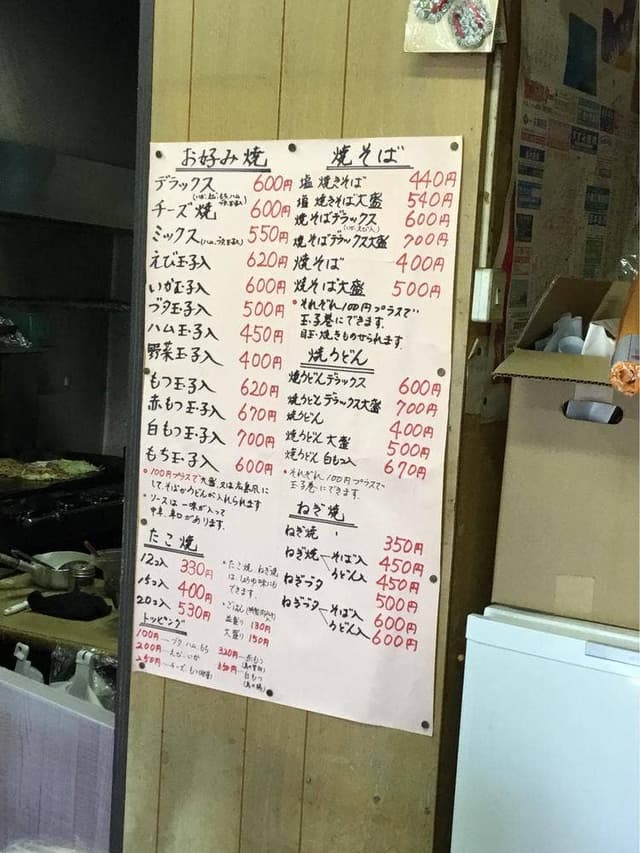 お好み焼
デラックス 600円
チーズ焼 600円
ミックス 550円
えび玉子入 620円
いか玉子入 600円
ブタ玉子入 500円
ハム玉子入 450円
野菜玉子入 400円
もつ玉子入 620円
赤もつ玉子入 670円
白もつ玉子入 700円
もち玉子入 600円
・100円プラスで大盛、又は広島風に
して、そばかうどんが入れられます
・ソースは一味が入って
中辛、辛口があります。
たこ焼
12コ入 330円
15コ入 400円
20コ入 530円
・たこ焼、ねぎ焼
は、しょうゆ味にも
できます。
・ごはん
並盛り 130円
大盛り 150円
トッピング
100円 ― ブタ、ハム、もち
200円 ― えび、いか
250円 ― チーズ、もつ
320円 ― 赤もつ
350円 ― 白もつ
焼そば
塩焼きそば 440円
塩焼きそば大盛 540円
焼そばデラックス 600円
(いか、えび入)
焼そばデラックス大盛 700円
焼そば 400円
焼そば大盛 500円
・それぞれ100円プラスで
玉子巻にできます。
目玉焼きものせられます。
焼うどん
焼うどんデラックス 600円
焼うどんデラックス大盛 700円
焼うどん 400円
焼うどん大盛 500円
焼うどん白もつ入 670円
・それぞれ100円プラスで
玉子巻にできます。
ねぎ焼
ねぎ焼 350円
ねぎ焼 そば入 450円
うどん入 450円
ねぎブタ 500円
ねぎブタ そば入 600円
うどん入 600円